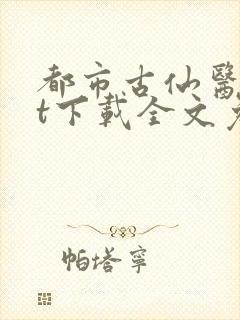 都市古仙醫
t下載全文
帕塔寧